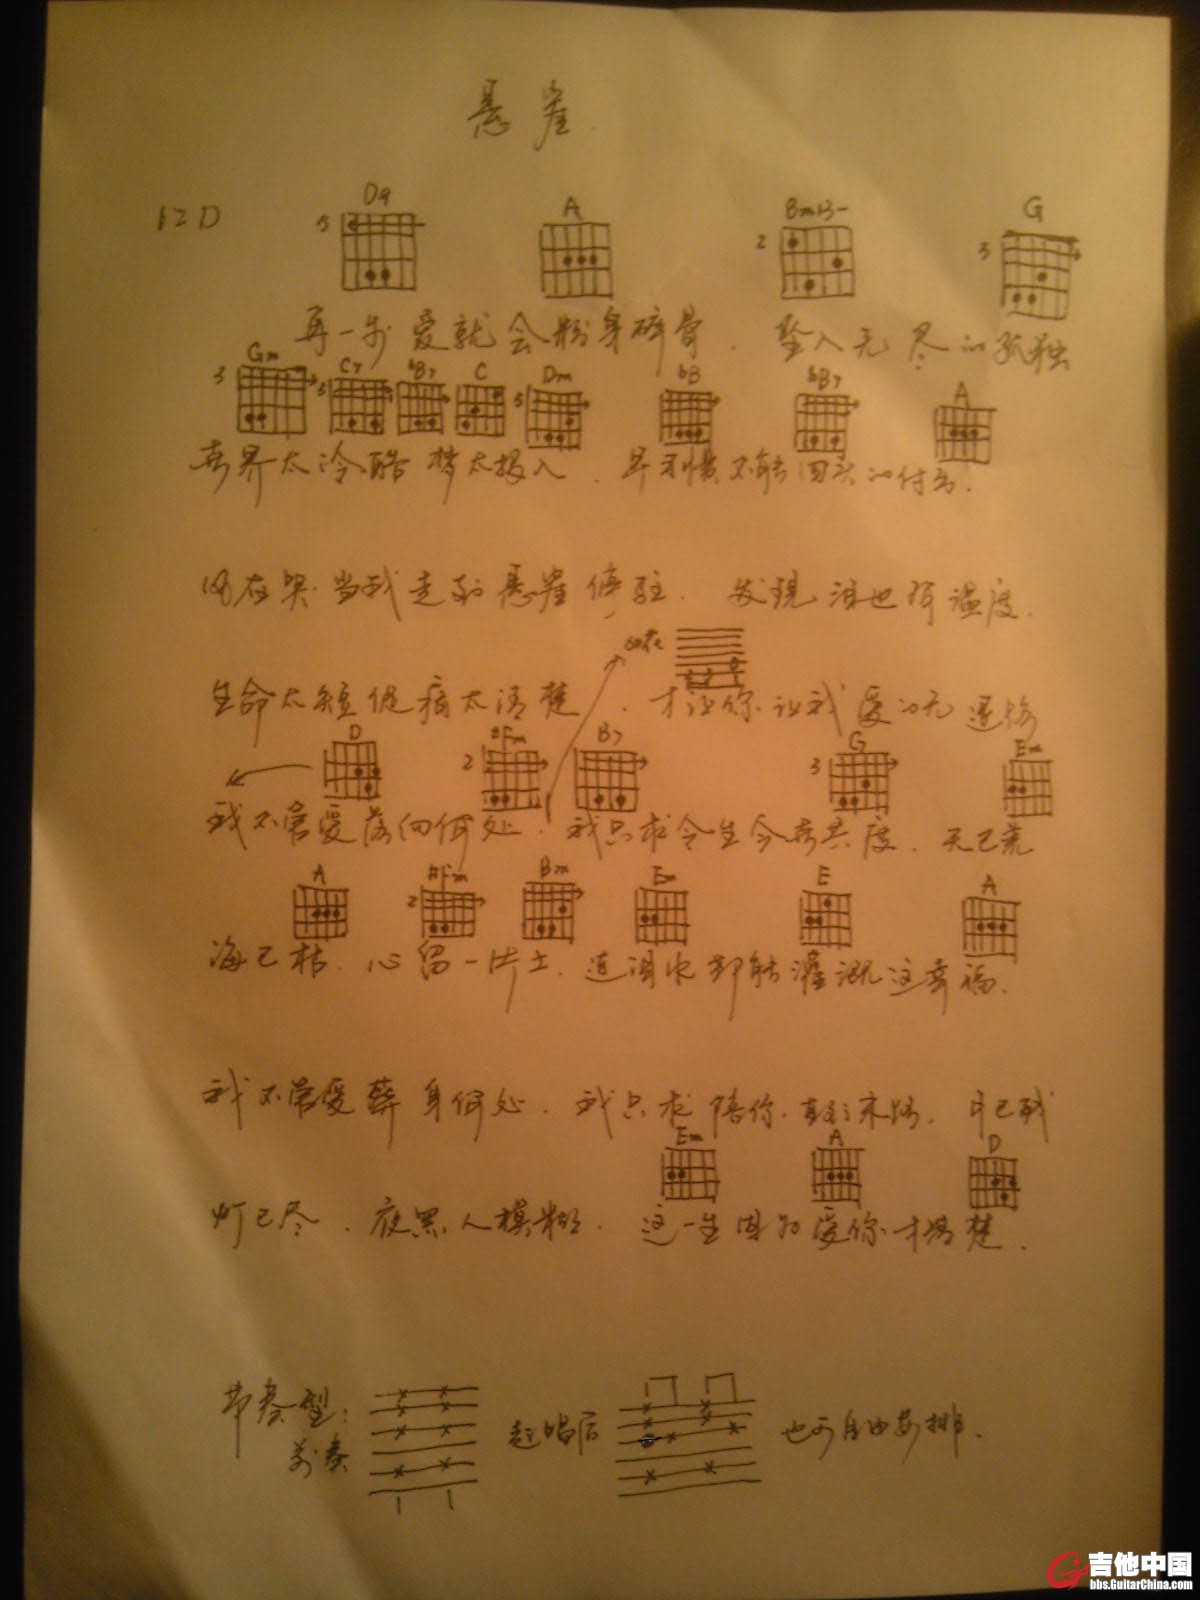 悬崖
1=D
D9 A Bm G
5 2 3
再一步 爱就会粉身碎骨. 坠入无尽的孤独
Gm C7 bB7 C Dm bB bB7 A
3 5 5
世界太冷酷 梦太投入. 早习惯不能回头的付出.
风在哭 当我走到悬崖停驻. 发现泪也有温度.
生命太短促痛太清楚. 才让你让我爱的无退路
D #Fm B7 G Em
2 3
我不管爱落向何处. 我只求今生今世共度. 天已荒
A #Fm Bm Em E A
2
海已枯. 心留一片土. 连泪水都能灌溉这幸福.
我不管爱葬身何处. 我只求陪你 末路. 月已残
Em A D
灯已尽. 夜黑人模糊. 这一生因为爱你才清楚.
节奏型:
前奏 起唱后 也可自由安排.
吉他中国
bbs.GuitarChina.com